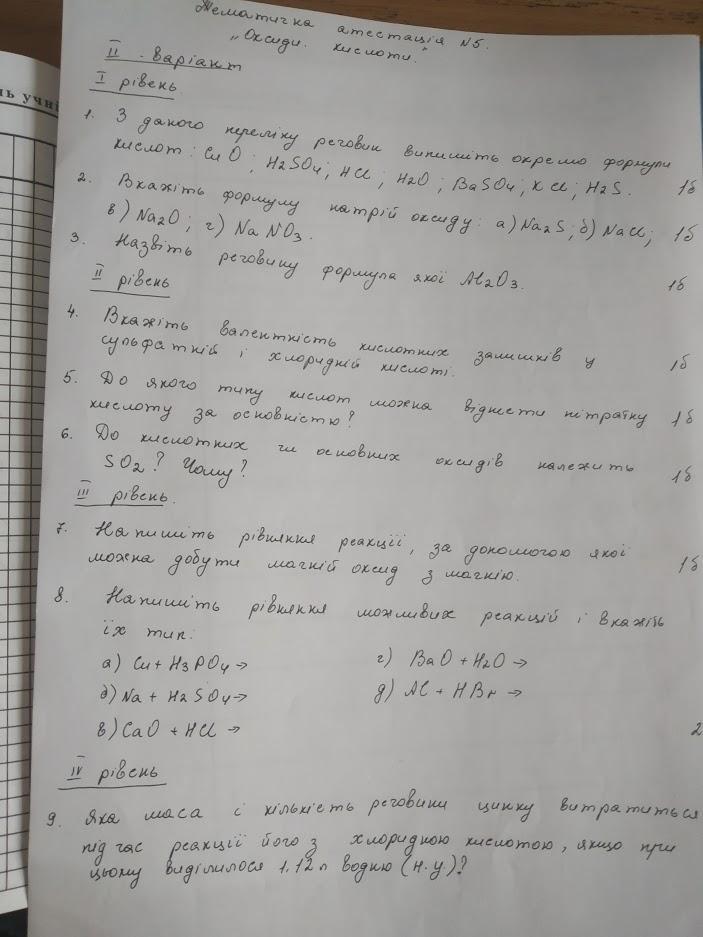 Тематична атестація №5.
„Оксиди. кислоти."
II варіант
I рівень
1. З даного переліку речовин випишіть окремо формули
кислот: CuO; H2SO4; HCl; H2O; BaSO4; KCl; H2S. 1б
2. Вкажіть формулу натрій оксиду: а) Na2S; б) NaCl; 1б
в) Na2O; г) NaNO3.
3. Назвіть речовину формула якої Al2O3. 1б
II рівень
4. Вкажіть валентність кислотних залишків у 1б
сульфатній і хлоридній кислоті.
5. До якого типу кислот можна віднести нітратну 1б
кислоту за основністю?
6. До кислотних чи основних оксидів належить
SO2? Чому? 1б
III рівень.
7. Напишіть рівняння реакції, за допомогою якої
можна добути магній оксид з магнію. 1б
8. Напишіть рівняння можливих реакцій і вкажіть
їх тип:
а) Cu + H3PO4 → г) BaO + H2O →
б) Na + H2SO4 → д) Al + HBr →
в) CaO + HCl → 2
IV рівень
9. Яка маса і кількість речовини цинку витратиться
під час реакції його з хлоридною кислотою, якщо при
цьому виділилося 1,12 л водню (н.у.)?